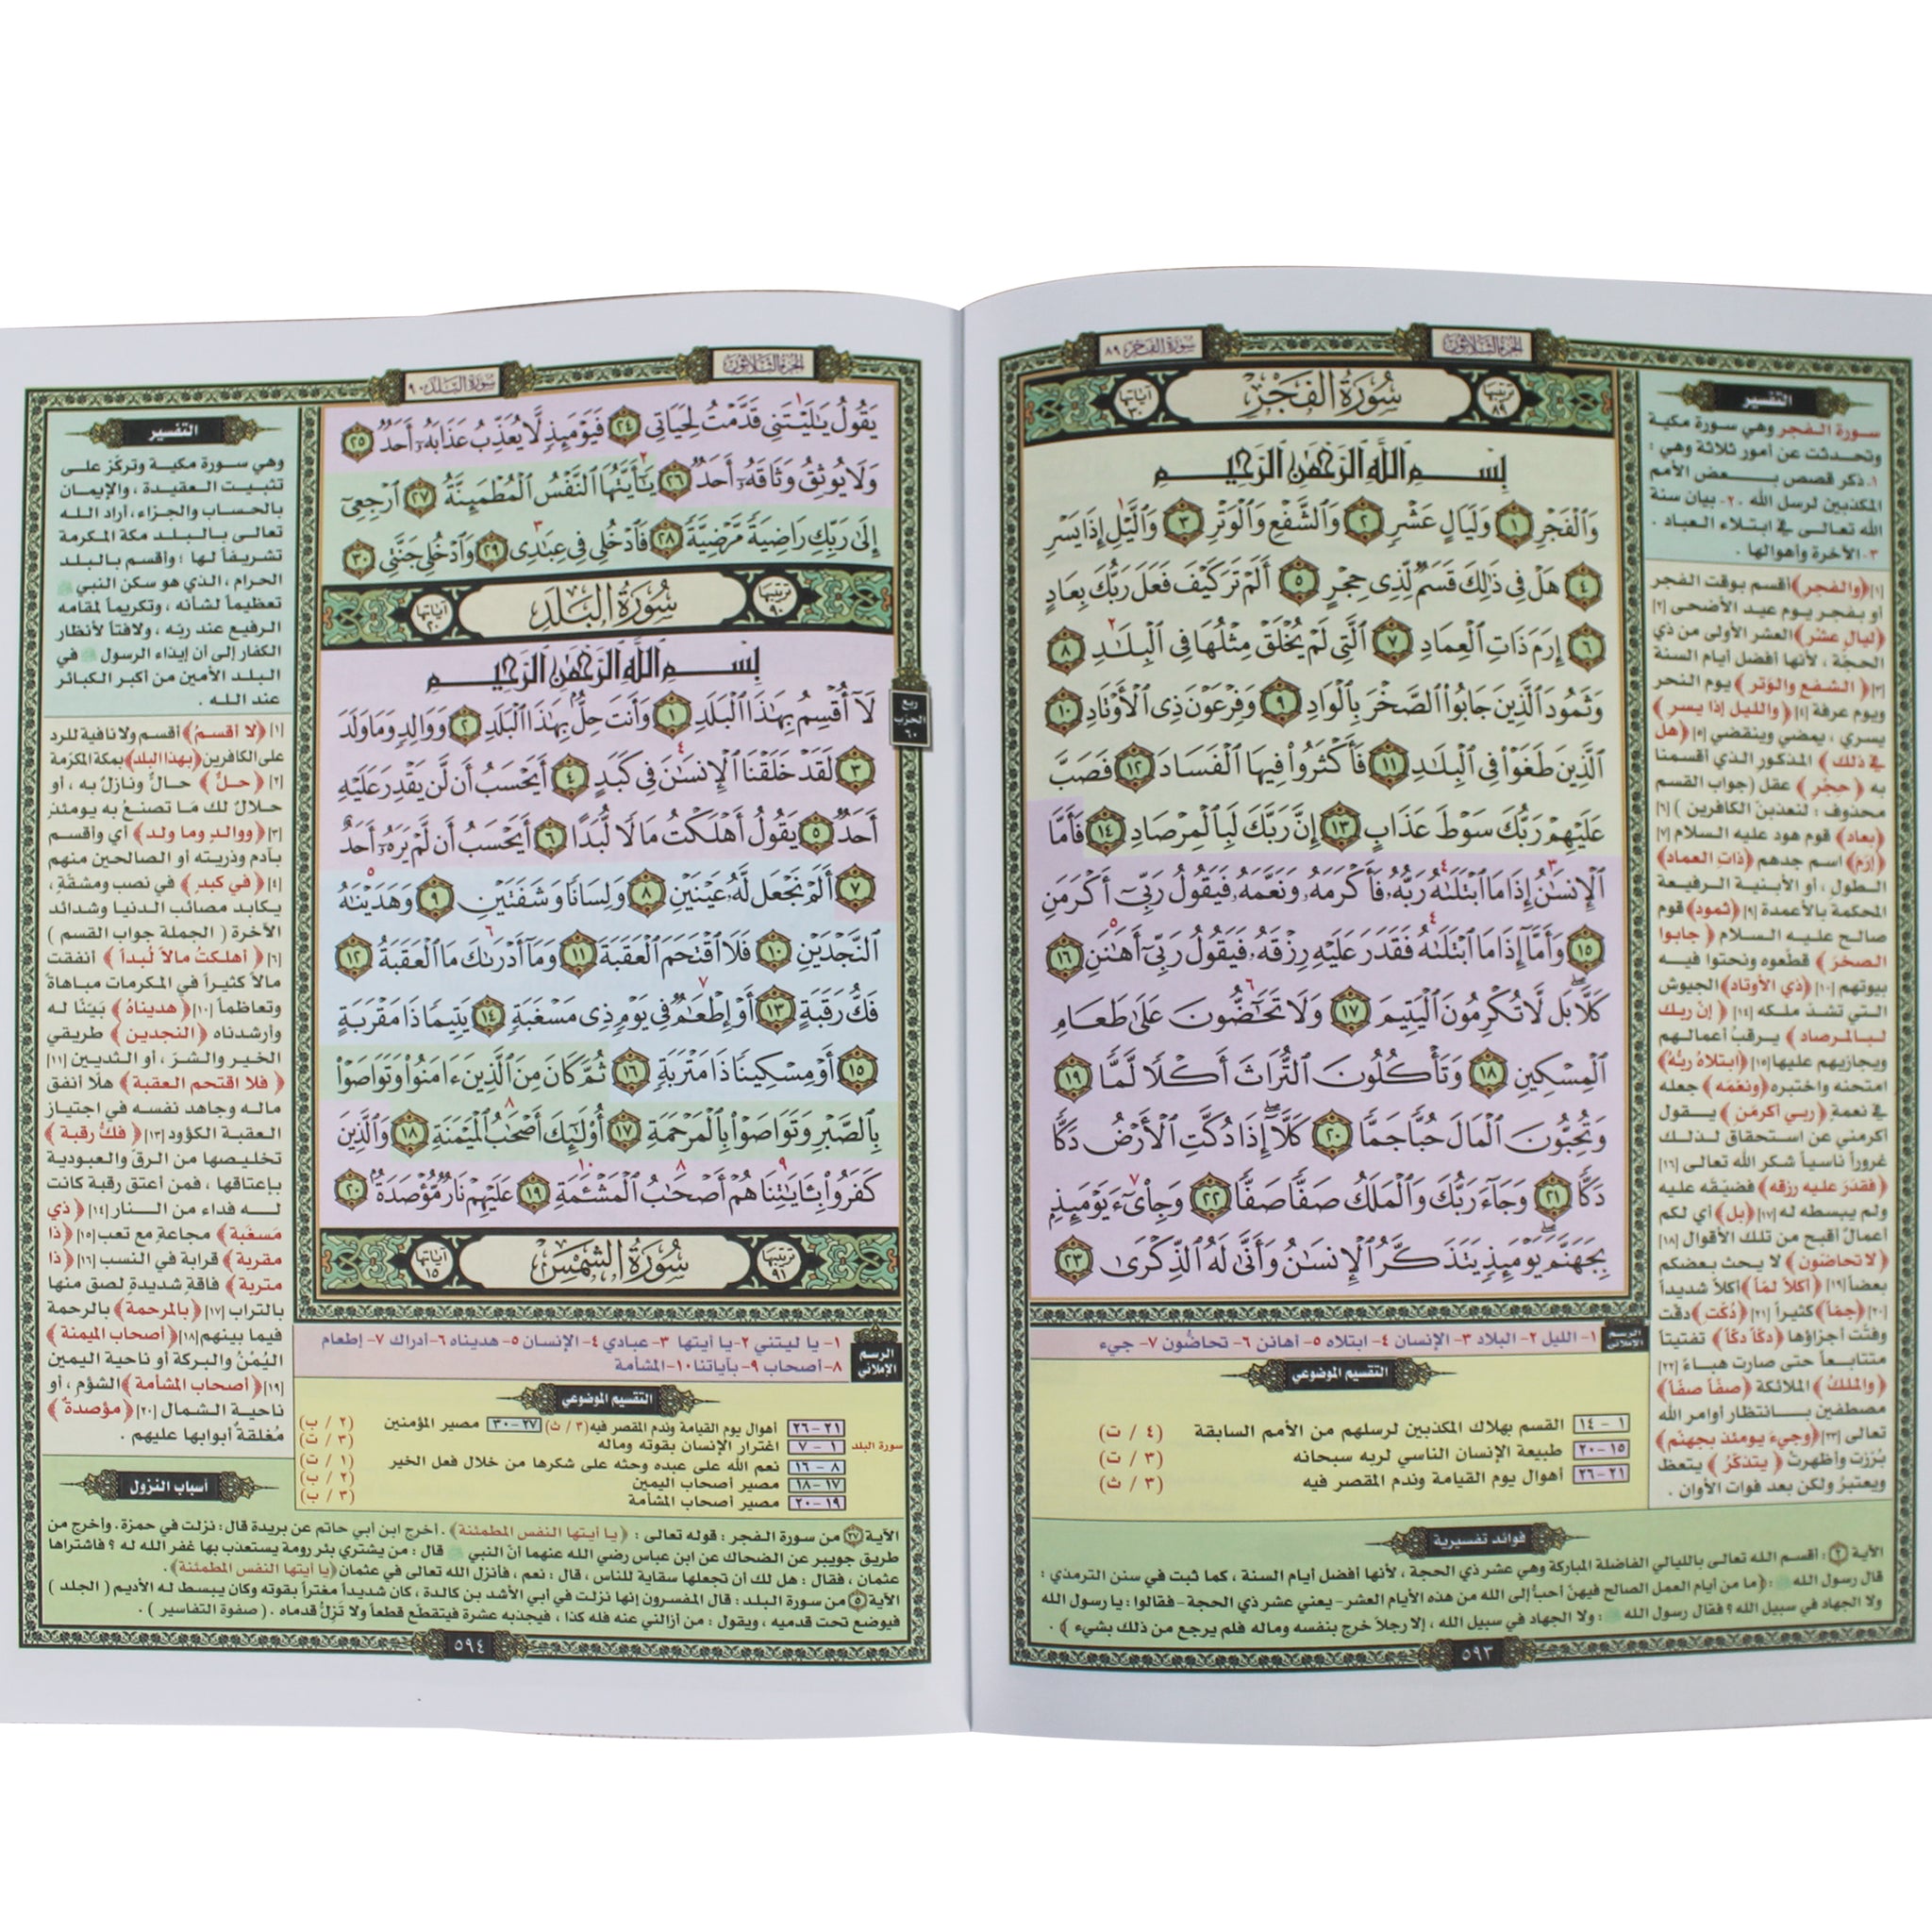 الجزء الثلاثون
سورة الفجر ٨٩
ترتيبها ٨٩
سُورَةُ الفَجْرِ
آياتها ٣٠
بِسْمِ ٱللَّهِ ٱلرَّحْمَٰنِ ٱلرَّحِيمِ
وَٱلْفَجْرِ ١ وَلَيَالٍ عَشْرٍ ٢ وَٱلشَّفْعِ وَٱلْوَتْرِ ٣ وَٱلَّيْلِ إِذَا يَسْرِ
٤ هَلْ فِى ذَٰلِكَ قَسَمٌ لِّذِى حِجْرٍ ٥ أَلَمْ تَرَ كَيْفَ فَعَلَ رَبُّكَ بِعَادٍ
٦ إِرَمَ ذَاتِ ٱلْعِمَادِ ٧ ٱلَّتِى لَمْ يُخْلَقْ مِثْلُهَا فِى ٱلْبِلَٰدِ ٨
وَثَمُودَ ٱلَّذِينَ جَابُوا۟ ٱلصَّخْرَ بِٱلْوَادِ ٩ وَفِرْعَوْنَ ذِى ٱلْأَوْتَادِ ١٠
ٱلَّذِينَ طَغَوْا۟ فِى ٱلْبِلَٰدِ ١١ فَأَكْثَرُوا۟ فِيهَا ٱلْفَسَادَ ١٢ فَصَبَّ
عَلَيْهِمْ رَبُّكَ سَوْطَ عَذَابٍ ١٣ إِنَّ رَبَّكَ لَبِٱلْمِرْصَادِ ١٤ فَأَمَّا
ٱلْإِنسَٰنُ إِذَا مَا ٱبْتَلَىٰهُ رَبُّهُۥ فَأَكْرَمَهُۥ وَنَعَّمَهُۥ فَيَقُولُ رَبِّىٓ أَكْرَمَنِ
١٥ وَأَمَّآ إِذَا مَا ٱبْتَلَىٰهُ فَقَدَرَ عَلَيْهِ رِزْقَهُۥ فَيَقُولُ رَبِّىٓ أَهَٰنَنِ ١٦
كَلَّا ۖ بَل لَّا تُكْرِمُونَ ٱلْيَتِيمَ ١٧ وَلَا تَحَٰٓضُّونَ عَلَىٰ طَعَامِ
ٱلْمِسْكِينِ ١٨ وَتَأْكُلُونَ ٱلتُّرَاثَ أَكْلًا لَّمًّا ١٩
وَتُحِبُّونَ ٱلْمَالَ حُبًّا جَمًّا ٢٠ كَلَّآ ۖ إِذَا دُكَّتِ ٱلْأَرْضُ دَكًّا
دَكًّا ٢١ وَجَآءَ رَبُّكَ وَٱلْمَلَكُ صَفًّا صَفًّا ٢٢ وَجِا۟ىٓءَ يَوْمَئِذٍۭ
بِجَهَنَّمَ ۚ يَوْمَئِذٍ يَتَذَكَّرُ ٱلْإِنسَٰنُ وَأَنَّىٰ لَهُ ٱلذِّكْرَىٰ ٢٣
التفسير
سورة الفجر وهي سورة مكية
وتحدثت عن أمور ثلاثة وهي :
١. ذكر قصص بعض الأمم
المكذبين لرسل الله .٢- بيان سنة
الله تعالى في ابتلاء العباد .
٣- الآخرة وأهوالها .
[١]﴿والفجر﴾ أقسم بوقت الفجر
أو بفجر يوم عيد الأضحى [٢]
﴿ليالٍ عشر﴾ العشر الأولى من ذي
الحجة ، لأنها أفضل أيام السنة
[٣]﴿ الشفع والوَتر ﴾ يوم النحر
ويوم عرفة [٤] ﴿والليل إذا يسر ﴾
يسري ، يمضي وينقضي [٥] ﴿هل
في ذلك ﴾ المذكور الذي أقسمنا
به ﴿ حِجْر ﴾ عقل (جواب القسم
محذوف : لنعذبن الكافرين ) [٦]
﴿بعاد﴾ قوم هود عليه السلام [٧]
﴿إرَم﴾ اسم جدهم ﴿ذات العماد﴾
الطول ، أو الأبنية الرفيعة
المحكمة بالأعمدة [٩] ﴿ثمود﴾ قوم
صالح عليه السلام ﴿ جابوا
الصخرَ ﴾ قطعوه ونحتوا فيه
بيوتهم [١٠] ﴿ذي الأوتاد﴾ الجيوش
التي تشدّ ملكه [١٤] ﴿ إنّ ربك
لبالمرصاد ﴾ يرقبُ أعمالهم
ويجازيهم عليها [١٥] ﴿ابتلاهُ ربُّهُ﴾
امتحنه واختبره ﴿ونعّمَه﴾ جعله
في نعمةٍ ﴿ربي أكرمَن﴾ يقول
أكرمني عن استحقاق لذلك
غروراً ناسياً شكر الله تعالى [١٦]
﴿فقدَر عليه رزقه﴾ فضيّقه عليه
ولم يبسطه له [١٧] ﴿بل﴾ أي لكم
أعمالٌ أقبح من تلك الأقوال [١٨]
﴿لا تحاضّون﴾ لا يحث بعضكم
بعضاً [١٩] ﴿أكلاً لمّا﴾ أكلاً شديداً
[٢٠] ﴿جمّاً﴾ كثيراً [٢١] ﴿دُكّت﴾ دقت
وفتّت أجزاؤها ﴿دكّاً دكّاً﴾ تفتيتاً
متتابعاً حتى صارت هباءً [٢٢]
﴿والملكُ﴾ الملائكة ﴿صفّاً صفّاً﴾
مصطفين بانتظار أوامر الله
تعالى [٢٣]﴿وجيء يومئذ بجهنّم﴾
بُرّزت وأظهرتْ ﴿يتذكّرُ ﴾ يتعظ
ويعتبرُ ولكن بعد فوات الأوان .
الرسم الإملائي
١- الليل ٢- البلاد ٣- الإنسان ٤- ابتلاه ٥- أهانن ٦- تحاضُّون ٧- جيء
التقسيم الموضوعي
١ - ١٤ القسم بهلاك المكذبين لرسلهم من الأمم السابقة ( ٤ / ت)
١٥-٢٠ طبيعة الإنسان الناسي لربه سبحانه ( ٣ / ت)
٢١-٢٦ أهوال يوم القيامة وندم المقصر فيه ( ٣ / ث)
فوائد تفسيرية
الآية ٢ : أقسم الله تعالى بالليالي الفاضلة المباركة وهي عشر ذي الحجة ، لأنها أفضل أيام السنة ، كما ثبت في سنن الترمذي :
قال رسول الله ﷺ : ﴿ما من أيام العمل الصالح فيهنّ أحبُّ إلى الله من هذه الأيام العشر- يعني عشر ذي الحجة- فقالوا : يا رسول الله
ولا الجهاد في سبيل الله ؟ فقال رسول الله ﷺ : ولا الجهاد في سبيل الله ، إلا رجلاً خرج بنفسه وماله فلم يرجع من ذلك بشيء ﴾ .
٥٩٣
الجزء الثلاثون
سورة البلد ٩٠
يَقُولُ يَٰلَيْتَنِى قَدَّمْتُ لِحَيَاتِى ٢٤ فَيَوْمَئِذٍ لَّا يُعَذِّبُ عَذَابَهُۥٓ أَحَدٌ ٢٥
وَلَا يُوثِقُ وَثَاقَهُۥٓ أَحَدٌ ٢٦ يَٰٓأَيَّتُهَا ٱلنَّفْسُ ٱلْمُطْمَئِنَّةُ ٢٧ ٱرْجِعِىٓ
إِلَىٰ رَبِّكِ رَاضِيَةً مَّرْضِيَّةً ٢٨ فَٱدْخُلِى فِى عِبَٰدِى ٢٩ وَٱدْخُلِى جَنَّتِى ٣٠
ترتيبها ٩٠
سُورَةُ البَلَدِ
آياتها ٢٠
بِسْمِ ٱللَّهِ ٱلرَّحْمَٰنِ ٱلرَّحِيمِ
لَآ أُقْسِمُ بِهَٰذَا ٱلْبَلَدِ ١ وَأَنتَ حِلٌّۢ بِهَٰذَا ٱلْبَلَدِ ٢ وَوَالِدٍ وَمَا وَلَدَ
٣ لَقَدْ خَلَقْنَا ٱلْإِنسَٰنَ فِى كَبَدٍ ٤ أَيَحْسَبُ أَن لَّن يَقْدِرَ عَلَيْهِ
أَحَدٌ ٥ يَقُولُ أَهْلَكْتُ مَالًا لُّبَدًا ٦ أَيَحْسَبُ أَن لَّمْ يَرَهُۥٓ أَحَدٌ
٧ أَلَمْ نَجْعَل لَّهُۥ عَيْنَيْنِ ٨ وَلِسَانًا وَشَفَتَيْنِ ٩ وَهَدَيْنَٰهُ
ٱلنَّجْدَيْنِ ١٠ فَلَا ٱقْتَحَمَ ٱلْعَقَبَةَ ١١ وَمَآ أَدْرَىٰكَ مَا ٱلْعَقَبَةُ ١٢
فَكُّ رَقَبَةٍ ١٣ أَوْ إِطْعَٰمٌ فِى يَوْمٍ ذِى مَسْغَبَةٍ ١٤ يَتِيمًا ذَا مَقْرَبَةٍ
١٥ أَوْ مِسْكِينًا ذَا مَتْرَبَةٍ ١٦ ثُمَّ كَانَ مِنَ ٱلَّذِينَ ءَامَنُوا۟ وَتَوَاصَوْا۟
بِٱلصَّبْرِ وَتَوَاصَوْا۟ بِٱلْمَرْحَمَةِ ١٧ أُو۟لَٰٓئِكَ أَصْحَٰبُ ٱلْمَيْمَنَةِ ١٨ وَٱلَّذِينَ
كَفَرُوا۟ بِـَٔايَٰتِنَا هُمْ أَصْحَٰبُ ٱلْمَشْـَٔمَةِ ١٩ عَلَيْهِمْ نَارٌ مُّؤْصَدَةٌۢ ٢٠
ترتيبها ٩١
سُورَةُ الشَّمْسِ
آياتها ١٥
ربع
الحزب
٦٠
التفسير
وهي سورة مكية وتركّز على
تثبيت العقيدة ، والإيمان
بالحساب والجزاء، أراد الله
تعالى بالبلد مكة المكرمة
تشريفاً لها ؛ وأقسم بالبلد
الحرام ، الذي هو سكن النبي ﷺ
تعظيماً لشأنه ، وتكريماً لمقامه
الرفيع عند ربّه ، ولافتاً لأنظار
الكفار إلى أن إيذاء الرسول ﷺ في
البلد الأمين من أكبر الكبائر
عند الله .
[١]﴿لا أقسمُ﴾ أقسم ولا نافية للرد
على الكافرين ﴿بهذا البلد﴾ بمكة المكرّمة
[٢] ﴿ حلٌّ ﴾ حالٌّ ونازلٌ به ، أو
حلالٌ لك مَا تصنعُ به يومئذٍ
[٣] ﴿ووالدٍ وما ولد﴾ أي وأقسم
بآدم وذريته أو الصالحين منهم
[٤] ﴿في كبد﴾ في نصب ومشقّةٍ ،
يكابد مصائب الدنيا وشدائد
الآخرة ( الجملة جواب القسم )
[٦] ﴿ أهلكتُ مالاً لُبداً ﴾ أنفقت
مالاً كثيراً في المكرمات مباهاةً
وتعاظماً [١٠] ﴿هديناهُ﴾ بَيّنّا له
وأرشدناه ﴿النجدين﴾ طريقي
الخير والشرّ ، أو الثديين [١١]
﴿ فلا اقتحم العقبة﴾ هلّا أنفق
ماله وجاهد نفسه في اجتياز
العقبة الكؤود [١٣] ﴿ فكُّ رقبة﴾
تخليصها من الرقّ والعبودية
بإعتاقها ، فمن أعتق رقبة كانت
له فداء من النار [١٤] ﴿ ذي
مَسغَبة﴾ مجاعةٍ مع تعب [١٥] ﴿ذا
مقربة﴾ قرابة في النسب [١٦] ﴿ذا
متربة﴾ فاقةٍ شديدةٍ لصق منها
بالتراب [١٧] ﴿بالمرحمة﴾ بالرحمة
فيما بينهم [١٨] ﴿أصحاب الميمنة﴾
اليُمْنُ والبركة أو ناحية اليمين
[١٩] ﴿ أصحاب المشأمة﴾ الشؤم ، أو
ناحية الشمال [٢٠] ﴿مؤصدةٌ ﴾
مُغلقةٌ أبوابها عليهم .
الرسم الإملائي
١- يا ليتني ٢- يا أيتها ٣- عبادي ٤- الإنسان ٥- هديناه ٦- أدراك ٧- إطعام
٨- أصحاب ٩- بآياتنا ١٠- المشأمة
التقسيم الموضوعي
٢١-٢٦ أهوال يوم القيامة وندم المقصر فيه (٣ / ث) ٢٧-٣٠ مصير المؤمنين (٢ / ب)
سورة البلد ١ - ٧ اغترار الإنسان بقوته وماله (٣ / ت)
٨ - ١٦ نعم الله على عبده وحثه على شكرها من خلال فعل الخير (١ / ت)
١٧-١٨ مصير أصحاب اليمين (٢ / ب)
١٩-٢٠ مصير أصحاب المشأمة (٣ / ب)
أسباب النزول
الآية ٢٧ من سورة الفجر : قوله تعالى : ﴿يا أيتها النفس المطمئنة﴾ . أخرج ابن أبي حاتم عن بريدة قال : نزلت في حمزة. وأخرج من
طريق جويبر عن الضحاك عن ابن عباس رضي الله عنهما أنّ النبي ﷺ قال : من يشتري بئر رومة يستعذب بها غفر الله له ؟ فاشتراها
عثمان ، فقال : هل لك أن تجعلها سقاية للناس ، قال : نعم ، فأنزل الله تعالى في عثمان ﴿يا أيتها النفس المطمئنة﴾ .
الآية ٥ من سورة البلد : قال المفسرون إنها نزلت في أبي الأشد بن كالدة ، كان شديداً مغتراً بقوته وكان يبسط له الأديم ( الجلد )
فيوضع تحت قدميه ، ويقول : من أزالني عنه فله كذا ، فيجذبه عشرة فيتقطّع قطعاً ولا تَزِلُّ قدماه . ( صفوة التفاسير ) .
٥٩٤